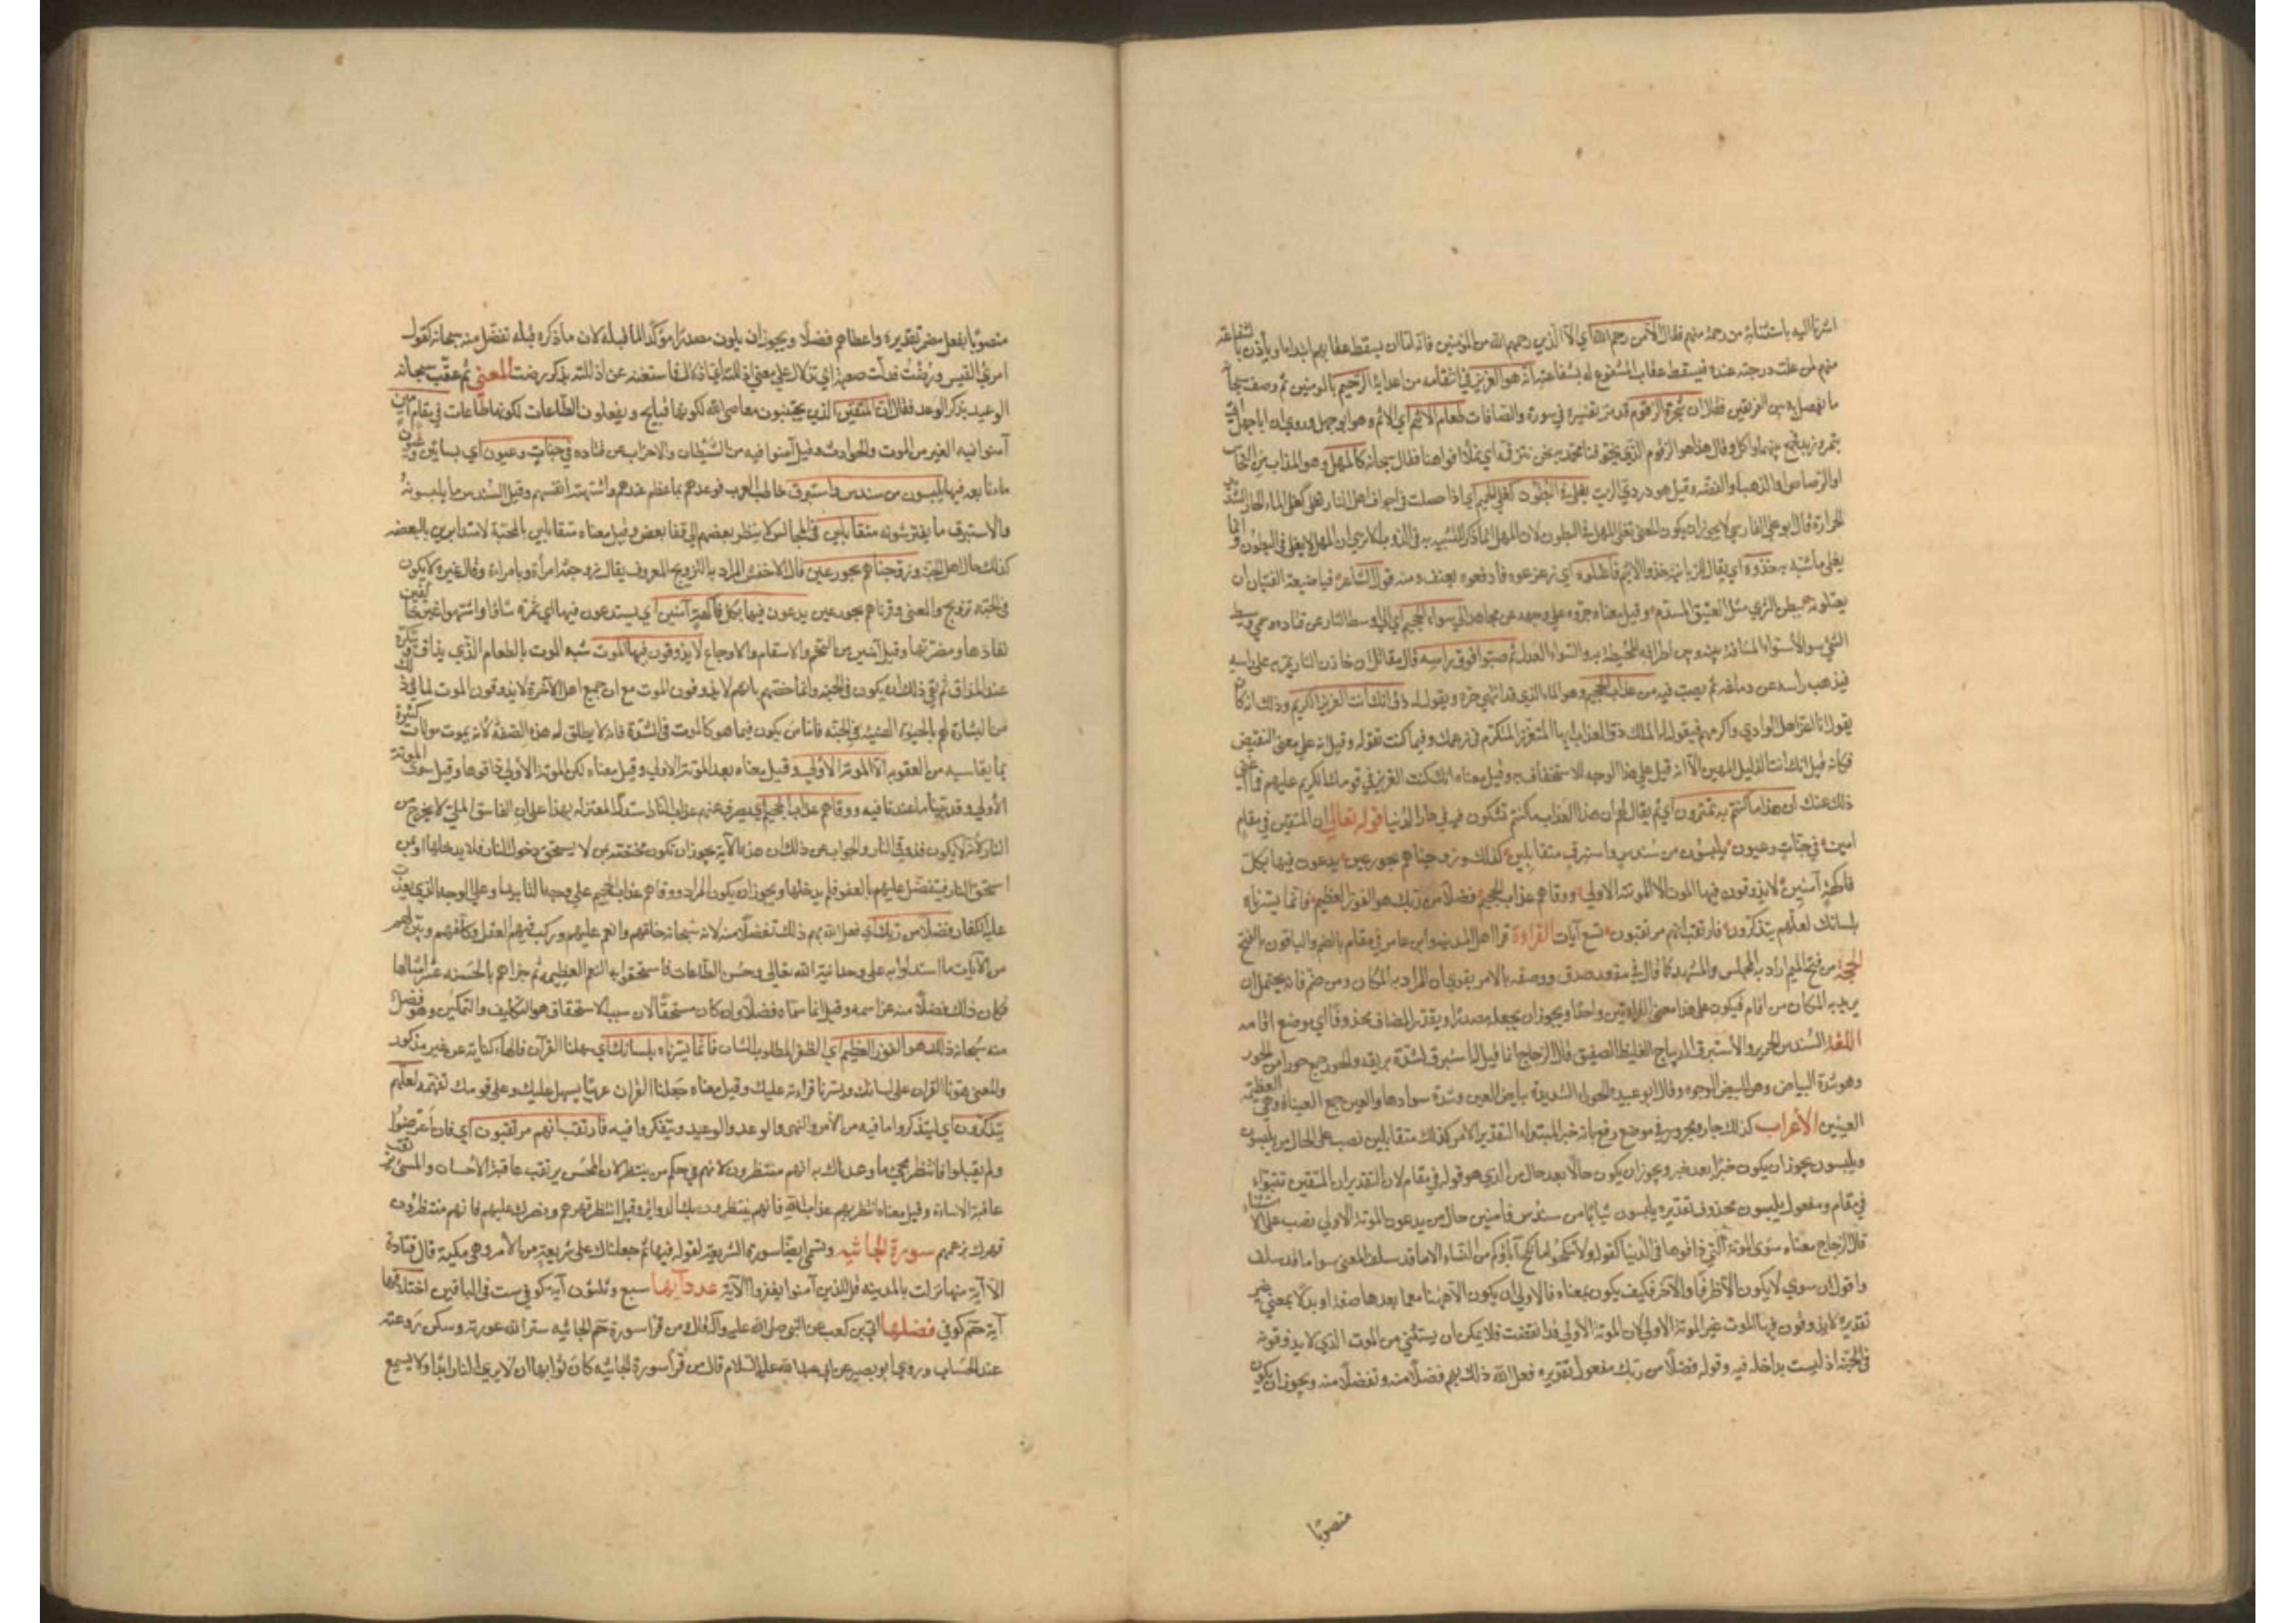 اشرنا اليه باستثنائه من رحمه منهم فقال الا من رحم الله اي الا الذين رحمهم الله من المؤمنين فانه اما ان يسقط عقابهم ابتداء او يأذن بالشفاعة
منهم لمن علت درجته عنده فيسقط عقاب المشفوع له بشفاعته انه هو العزيز في انتقامه من اعدائه الرحيم بالمومنين ثم وصف سبحانه
ما يفصل به بين الفريقين فقال ان شجرة الزقوم قد مر تفسيره في سورة والصافات طعام الاثيم اي الاثم وهو ابو جهل وروي ان ابا جهل اتى
بتمر وزبد فجمع بينهما واكل وقال هذا هو الزقوم الذي يخوفنا محمد به نحن نتزقمه اي نملأ افواهنا فقال سبحانه كالمهل وهو المذاب من النحاس
او الرصاص او الذهب او الفضه وقيل هو دردي الزيت يغلي في البطون كغلي الحميم اي اذا حصلت في اجواف اهل النار تغلي كغلي الماء الحار الشديد
الحرارة قال ابو علي الفارسي لا يجوز ان يكون المعنى يغلي المهل في البطون لان المهل انما ذكر للتشبيه به في الذوب الا ترى ان المهل لا يغلي في البطون وانما
يغلي ما شبه به خذوه اي يقال للزبانيه خذوا الاثيم فاعتلوه اي زعزعوه وادفعوه بعنف ومنه قول الشاعر فيا ضيعة الفتيان ان
يعتلونه ببطن الثرى مثل الفنيق المسدم وقيل معناه جروه على وجهه عن مجاهد الى سواء الجحيم اي الى وسط النار عن قتاده وسمي وسط
الشي سواء لاستواء المسافة بينه وبين اطرافه المحيطة به والسواء العدل ثم صبوا فوق راسه قال مقاتل ان خازن النار يمر به على راسه
فيذهب راسه عن دماغه ثم يصب فيه من عذاب الحميم وهو الماء الذي قد انتهى حره ويقول له ذق انك انت العزيز الكريم وذلك انه كان
يقول انا اعز اهل الوادي واكرمهم فيقول له الملك ذق العذاب ايها المتعزز المتكرم في زعمك وفيما كنت تقوله وقيل انه على معنى النقيض
فكانه قيل انك انت الذليل المهين الا انه قيل على هذا الوجه للاستخفاف به وقيل معناه انك كنت العزيز في قومك الكريم عليهم فما اغنى
ذلك عنك ان هذا ما كنتم به تمترون اي ثم يقال لهم ان هذا العذاب ما كنتم تشكون فيه في دار الدنيا قوله تعالى ان المتقين في مقام
امين في جنات وعيون يلبسون من سندس واستبرق متقابلين كذلك وزوجناهم بحور عين يدعون فيها بكل
فاكهة آمنين لا يذوقون فيها الموت الا الموتة الاولى ووقاهم عذاب الجحيم فضلا من ربك هو الفوز العظيم فانما يسرناه
بلسانك لعلهم يتذكرون فارتقب انهم مرتقبون تسع آيات القراءة قرا اهل المدينه وابن عامر في مقام بالضم والباقون بالفتح
الحجة من فتح الميم اراد به المجلس والمشهد كما قال في مقعد صدق ووصفه بالامن يقوي ان المراد به المكان ومن ضم فانه يحتمل ان
يريد به المكان من اقام فيكون على هذا معنى القراءتين واحدا ويجوز ان يجعله مصدرا ويقدر المضاف محذوفا اي موضع اقامه
اللغة السندس الحرير والاستبرق الديباج الغليظ الصفيق قال الزجاج انما قيل له استبرق لشدة بريقه والحور جمع حوراء من الحور
وهو شدة البياض وهن البيض الوجوه وقال ابو عبيده الحوراء الشديدة بياض العين وشدة سوادها والعين جمع العيناء وهي العظيمة
العينين الاعراب كذلك جار ومجرور في موضع رفع بانه خبر المبتدا التقدير الامر كذلك متقابلين نصب على الحال من يلبسون
ويلبسون يجوز ان يكون خبرا بعد خبر ويجوز ان يكون حالا بعد حال من الذي هو قوله في مقام لان التقدير ان المتقين تبوءوا
في مقام ومفعول يلبسون محذوف تقديره يلبسون ثيابا من سندس فآمنين حال من يدعون الموتة الاولى نصب على الاستثناء
قال الزجاج معناه سوى الموتة التي ذاقوها في الدنيا كقوله ولا تنكحوا ما نكح آباؤكم من النساء الا ما قد سلف المعنى سوى ما قد سلف
واقول ان سوى لا يكون الا ظرفا والا حرف فكيف يكون بمعناه فالاولى ان يكون الا هنا مع ما بعدها صفة او بدلا بمعنى غير
تقديره لا يذوقون فيها الموت غير الموتة الاولى لان الموتة الاولى قد انقضت فلا يمكن ان يستثني من الموت الذي لا يذوقونه
في الجنة اذ ليست بداخلة فيه وقوله فضلا من ربك مفعول له تقديره فعل الله ذلك بهم فضلا منه وتفضلا منه ويجوز ان يكون
منصوبا
منصوبا بفعل مضمر تقديره واعطاهم فضلا ويجوز ان يكون مصدرا مؤكدا لما قبله لان ما ذكره قبله تفضل منه سبحانه كقول
امرئ القيس ورضت فذلت صعبة اي اذلال على معنى اذللته اي اذلال فاستغنى عن اذللته بذكر رضت المعنى ثم عقب سبحانه
الوعيد بذكر الوعد فقال ان المتقين الذين يجتنبون معاصي الله لكونها قبايح ويفعلون الطاعات لكونها طاعات في مقام امين
آمنوا فيه الغير من الموت والحوادث وقيل آمنوا فيه من الشيطان والاحزان عن قتاده في جنات وعيون اي بساتين وعيون
ماء نابعة فيها يلبسون من سندس واستبرق خاطب العرب فوعدهم بما عظم عندهم واشتهته انفسهم وقيل السندس ما يلبسونه
والاستبرق ما يفترشونه متقابلين في المجالس لا ينظر بعضهم الى قفا بعض وقيل معناه متقابلين بالمحبة لا متدابرين بالبغضه
كذلك حال اهل الجنة وزوجناهم بحور عين قال الاخفش المراد به التزويج المعروف يقال زوجته امرأة وبامراة وقال غيره لا يكون
في الجنه تزويج والمعنى وقرناهم بحور عين يدعون فيها بكل فاكهة آمنين اي يستدعون فيها اي ثمرة شاؤا واشتهوا غير خائفين
نفادها ومضرتها وقيل آمنين من التخم والاسقام والاوجاع لا يذوقون فيها الموت شبه الموت بالطعام الذي يذاق وينكره
عند المذاق ثم نفى ذلك ان يكون في الجنه وانما خصهم بانهم لا يذوقون الموت مع ان جميع اهل الآخرة لا يذوقون الموت لما في ذلك
من البشارة لهم بالحيوة الهنيئه في الجنه فاما من يكون فيما هو كالموت في الشدة فانه لا يطلق له هذه الصفه لانه يموت موتات كثيرة
بما يقاسيه من العقوبه الا الموتة الاولى وقيل معناه بعد الموتة الاولى وقيل معناه لكن الموتة الاولى ذاقوها وقيل سوى الموتة
الاولى وقد بينا ما عندنا فيه ووقاهم عذاب الجحيم اي يصرف عنهم عذاب النار استدلت المعتزله بهذا على ان الفاسق الملي لا يخرج من
النار لانه لا يكون قد وقي النار والجواب عن ذلك ان هذه الآية يجوز ان تكون مختصة بمن لا يستحق دخول النار فلا يدخلها او بمن
استحق النار فيتفضل عليهم بالعفو فلم يدخلها ويجوز ان يكون المراد ووقاهم عذاب الجحيم على وجه التأبيد او على الوجه الذي يعذب
عليه الكفار فضلا من ربك اي فعل الله بهم ذلك تفضلا منه لانه سبحانه خلقهم وانعم عليهم وركب فيهم العقل وكلفهم وبين لهم
من الآيات ما استدلوا به على وحدانية الله تعالى وحسن الطاعات فاستحقوا به النعم العظيمه ثم جزاهم بالحسنه عشر امثالها
فكان ذلك فضلا منه عز اسمه وقيل انما سماه فضلا وان كان مستحقا لان سبب الاستحقاق هو التكليف والتمكين وهو فضل
منه سبحانه ذلك هو الفوز العظيم اي الظفر المطلوب الشان فانما يسرناه بلسانك اي سهلنا القرآن فالهاء كناية عن غير مذكور
والمعنى هونا القران على لسانك ويسرنا قراءته عليك وقيل معناه جعلنا القران عربيا ليسهل عليك وعلى قومك تفهمه لعلهم
يتذكرون اي ليتذكروا ما فيه من الامر والنهي والوعد والوعيد ويتفكروا فيه فارتقب انهم مرتقبون اي فان اعرضوا
ولم يقبلوا فانتظر مجيء ما وعدناك به انهم منتظرون لانهم في حكم من ينتظر لان المحسن يرتقب عاقبة الاحسان والمسيء يرتقب
عاقبة الاساءة وقيل معناه انتظر بهم عذاب الله فانهم ينتظرون بك الدوائر وقيل انتظر قهرهم ونصرك عليهم فانهم منتظرون
قهرك بزعمهم سورة الجاثيه وتسمى ايضا سورة الشريعة لقوله فيها ثم جعلناك على شريعة من الامر وهي مكية قال قتادة
الا آية منها نزلت بالمدينه قل للذين آمنوا يغفروا الآية عدد آيها سبع وثلثون آية كوفي ست في الباقين اختلافها
آية حم كوفي فضلها ابي بن كعب عن النبي صلى الله عليه وآله قال ومن قرا سورة حم الجاثيه ستر الله عورته وسكن روعته
عند الحساب وروى ابو بصير عن ابي عبد الله عليه السلام قال من قرأ سورة الجاثيه كان ثوابها ان لا يرى النار ابدا ولا يسمع